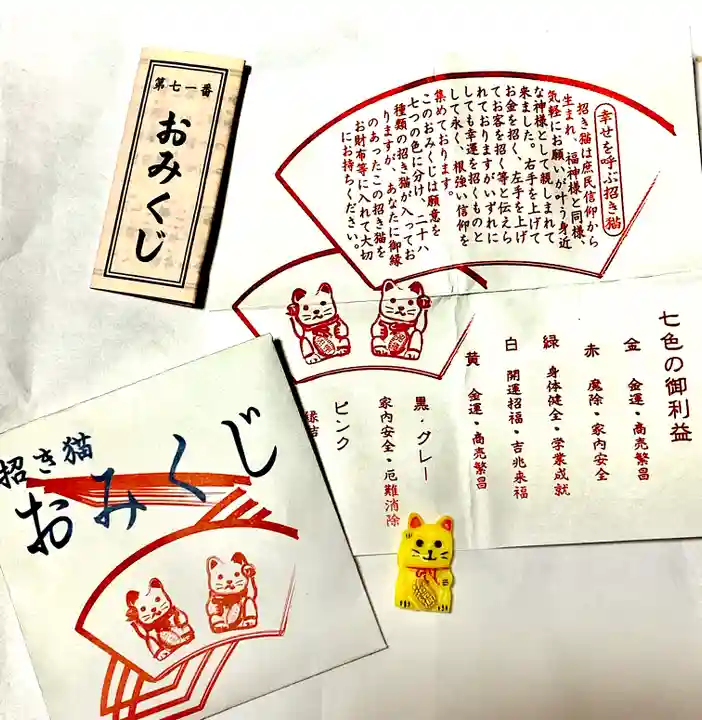 第七一番
おみくじ
幸せを呼ぶ招き猫
招き猫は庶民信仰から
生まれ、福神様と同様、
気軽にお願いが叶う身近
な神様として親しまれて
来ました。右手を上げて
お金を招く、左手を上げ
てお客を招く等と伝えら
れておりますがいずれに
しても幸運を招くものと
して永く、根強い信仰を
集めております。
このおみくじは願意を
七つの色に分け、二十八
種類の招き猫が入ってお
りますが、あなたに御縁
のあったこの招き猫を
お財布等に入れて大切
にお持ちください。
七色の御利益
金 金運・商売繁昌
赤 魔除・家内安全
緑 身体健全・学業成就
白 開運招福・吉兆来福
黄 金運・商売繁昌
黒・グレー
家内安全・厄難消除
ピンク
招き猫
おみくじ